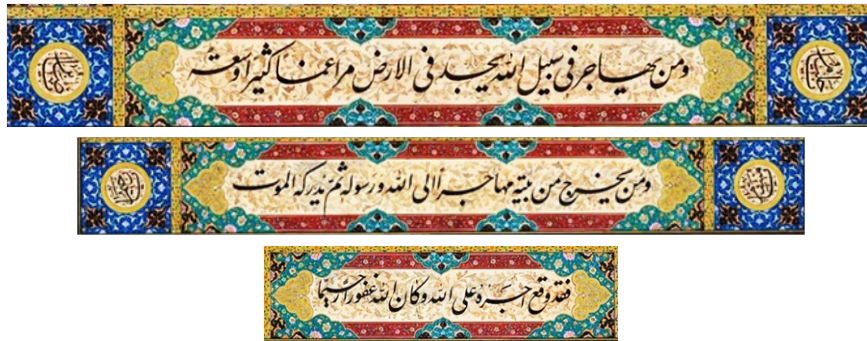 ومن يهاجر في سبيل الله يجد في الارض مراغما كثيرا وسعة
ومن يخرج من بيته مهاجرا الى الله ورسوله ثم يدركه الموت
فقد وقع اجره على الله وكان الله غفورا رحيما